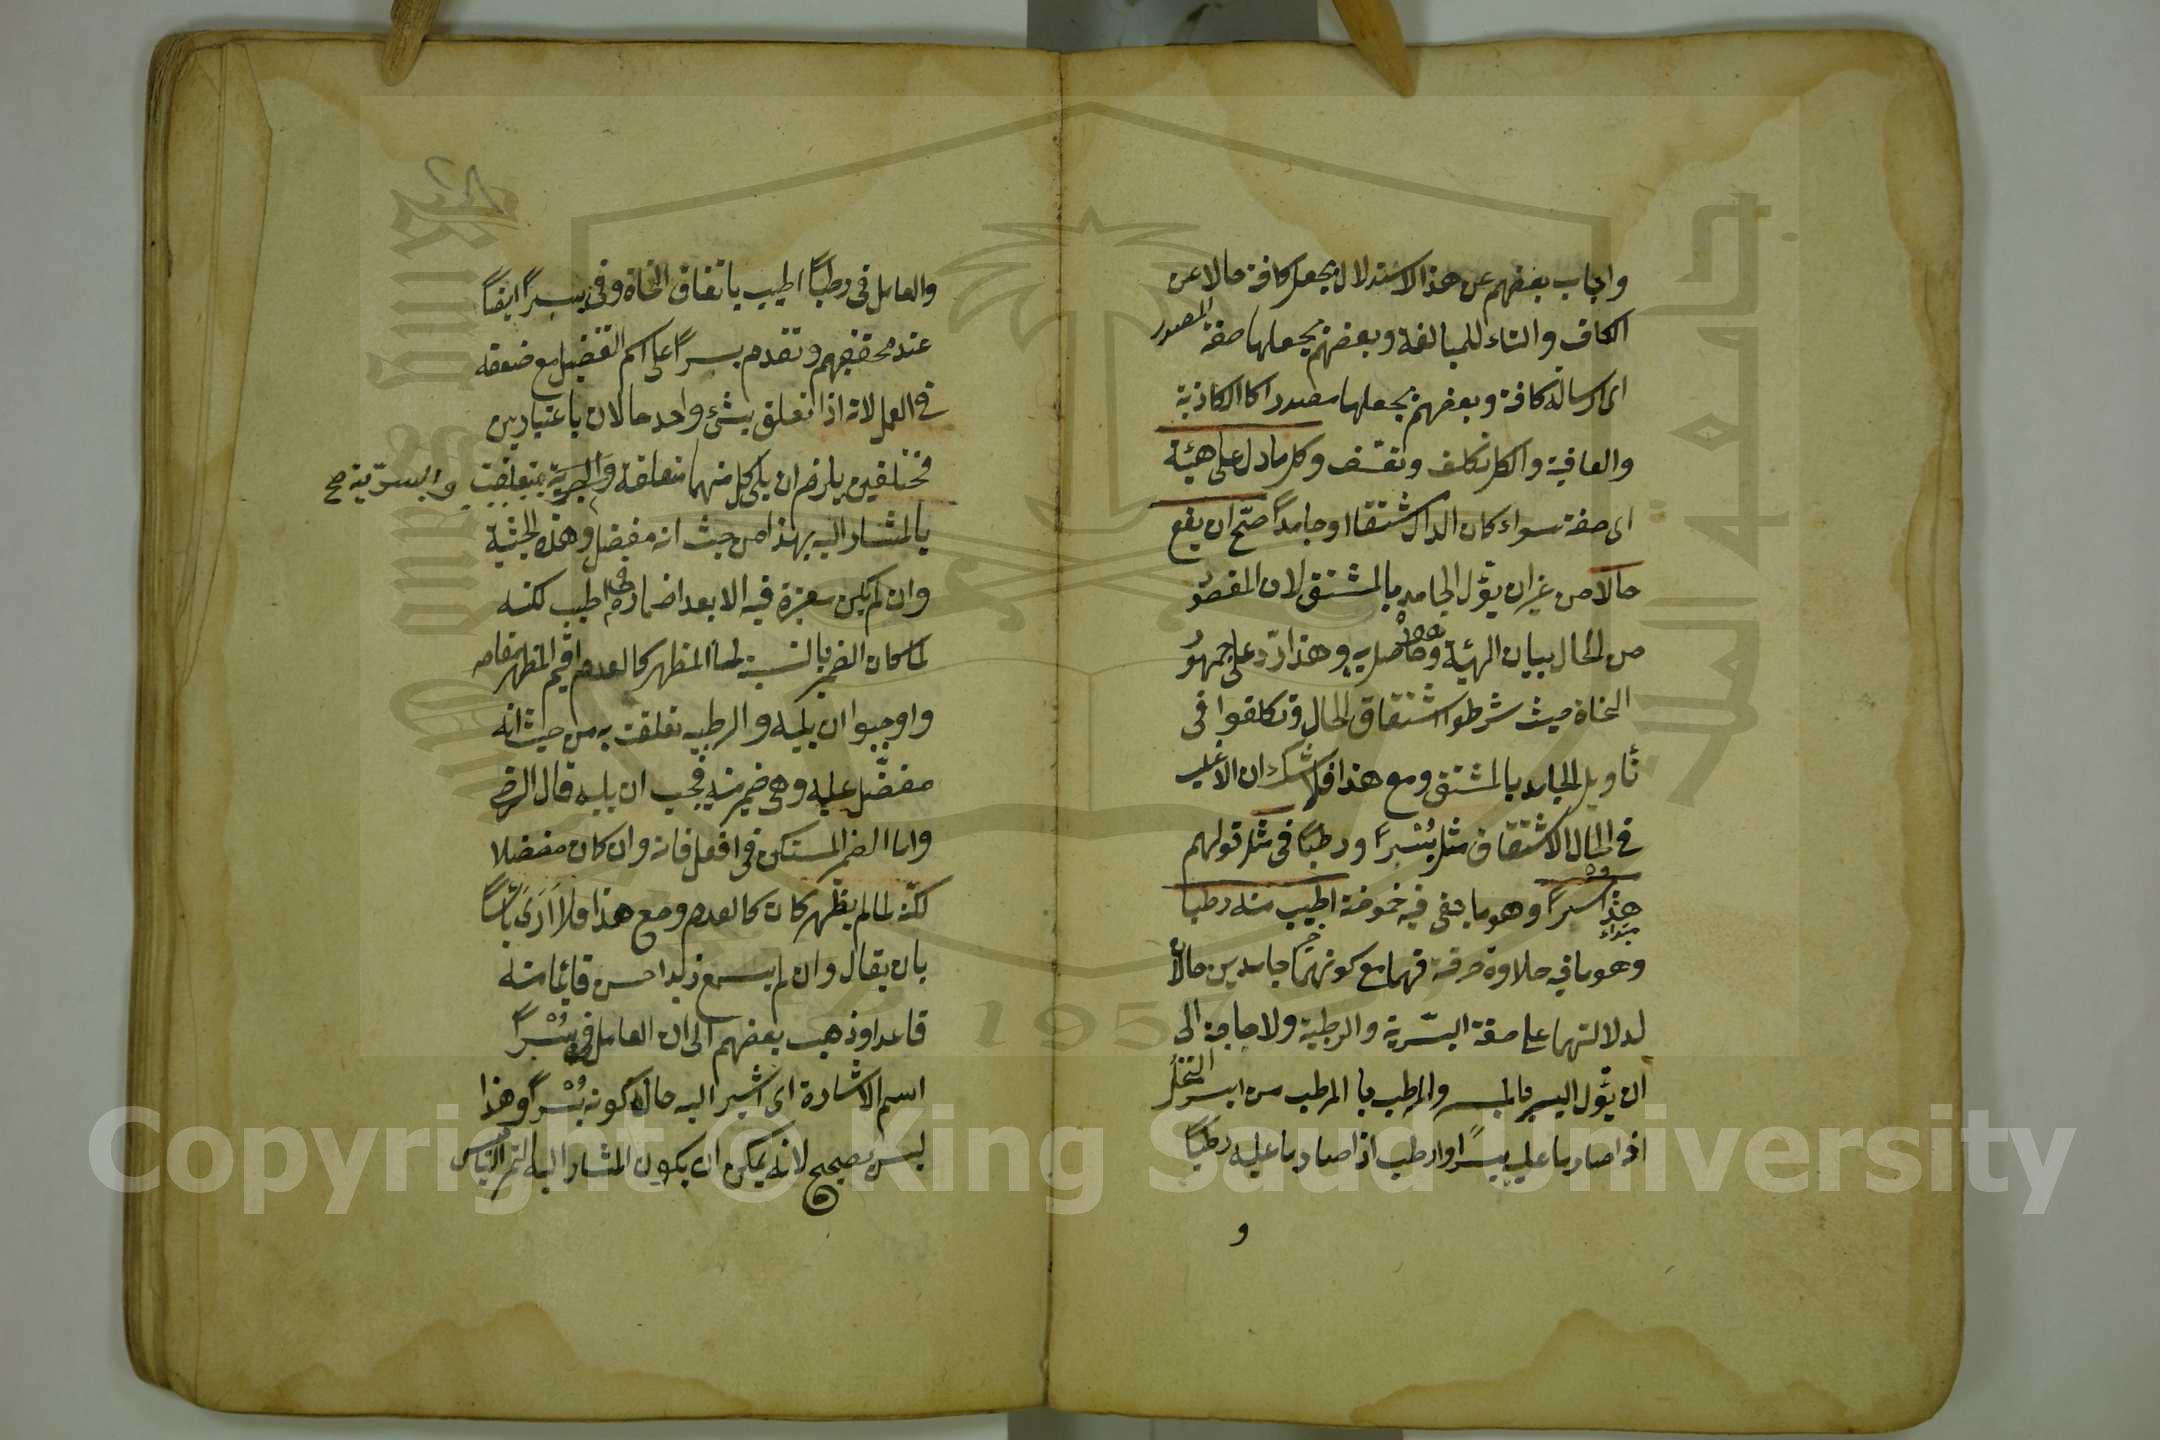 واجاب بعضهم عن هذا الاستدلال بجعل كافة حالا عن
الكاف والتاء للمبالغة وبعضهم يجعلها صفة المصدر
اى ارسالة كافة وبعضهم يجعلها مصدرا كالكاذبة
والعافية والكل تكلف وتعسف وكل ما دل على هيئة
اى صفة سواء كان الدال مشتقا او جامدا صح ان يقع
حالا من غير ان يؤل الجامد بالمشتق لان المقصود
من الحال بيان الهيئة وهو حاصل به وهذا رد على جمهور
النحاة حيث شرطوا اشتقاق الحال وتكلفوا فى
تأويل الجامد بالمشتق ومع هذا فلا شك ان الاغلب
فى الحال الاشتقاق مثل بُسْرًا ورطبًا فى مثل قولهم
هذا بُسْرًا وهو ما بقى فيه حموضة اطيب منه رطبا
مبتداء
وهو ما فيه حلاوة صرفة فهما مع كونهما جامدين حالان
لدلالتهما على صفة البسرية والرطبية ولا حاجة الى
ان يؤل البسر بالمبسر والرطب بالمرطب من ابسر النخل
اذا صار ما عليه بسرًا وارطب اذا صار ما عليه رطبًا
و
والعامل فى رطبًا اطيب باتفاق النحاة وفى بسرًا ايضًا
عند محققيهم وتقدم بسرًا على اسم التفضيل مع ضعفه
فى العمل لانه اذا تعلق بشئ واحد حالان باعتبارين
مختلفين يلزم ان يلى كل منهما متعلقه والبسرية تعلقت والبسرية صح
بالمشار اليه بهذا من حيث انه مفضل وهذه الحيثية
وان لم يكن معتبرة فيه الا بعد اضماره فى اطيب لكنه
لما كان الضمير بالنسبة الى المظهر كالعدم اقيم المظهر مقامه
واوجبوا ان يليه والرطبية تعلقت به من حيث انه
مفضّل عليه وهى ضمير منه فيجب ان يليه قال الرضى
واما الضمير المستكن فى افعل فانه وان كان مفضلا
لكنّه لما لم يظهر كان كالعدم ومع هذا فلا اَرَىَ بأسًا
بان يقال وان لم يسمع زيد احسن قائما منه
قاعدا وذهب بعضهم الى ان العامل فى بُسْرًا
اسم الاشارة اى اشير اليه حال كونه بُسْرًا وهذا
ليس بصحيح لانه يمكن ان يكون المشار اليه التمر اليابس
Copyright © King Saud University
1957